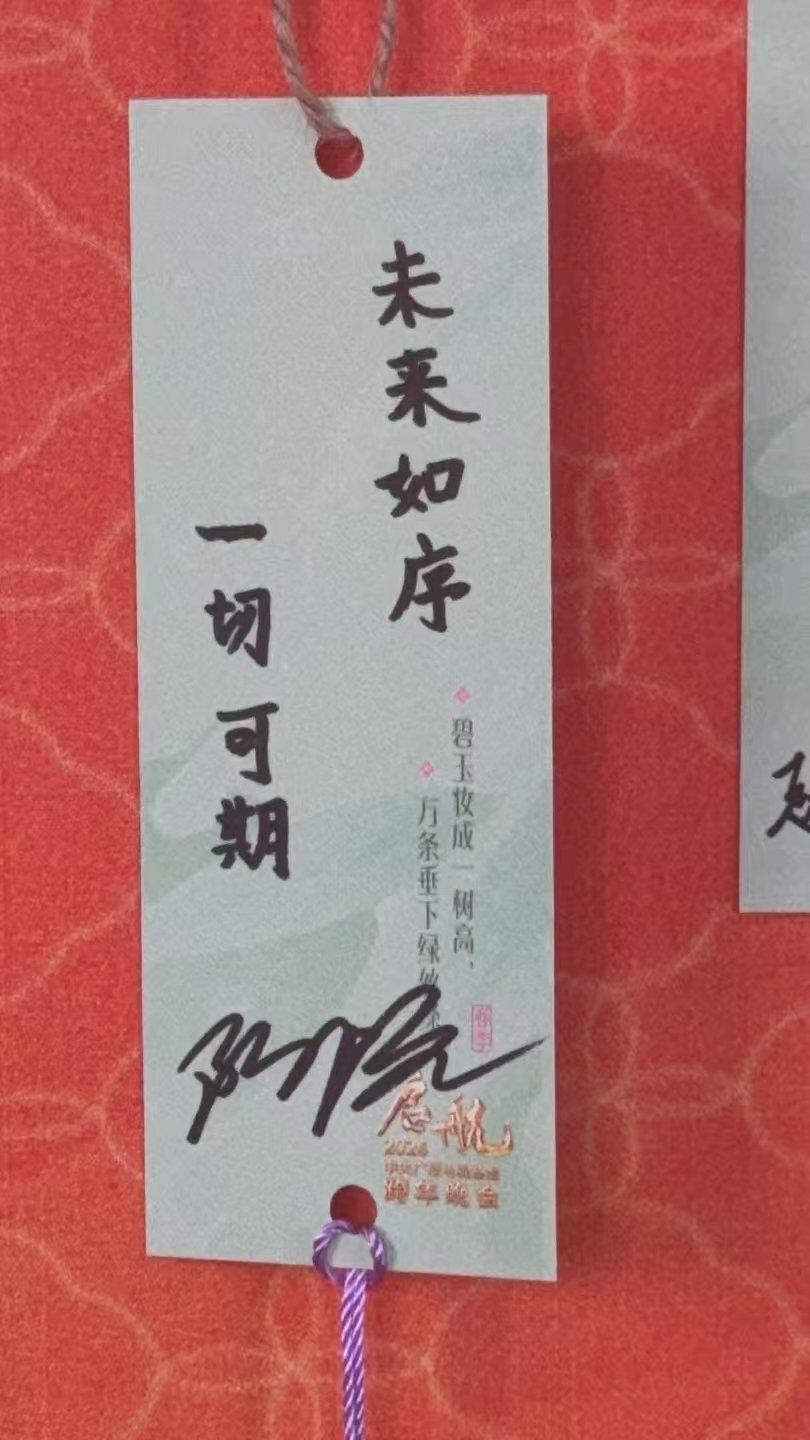 未来如序
一切可期
碧玉妆成一树高，
万条垂下绿丝
启航
2026
中央广播电视总台
跨年晚会